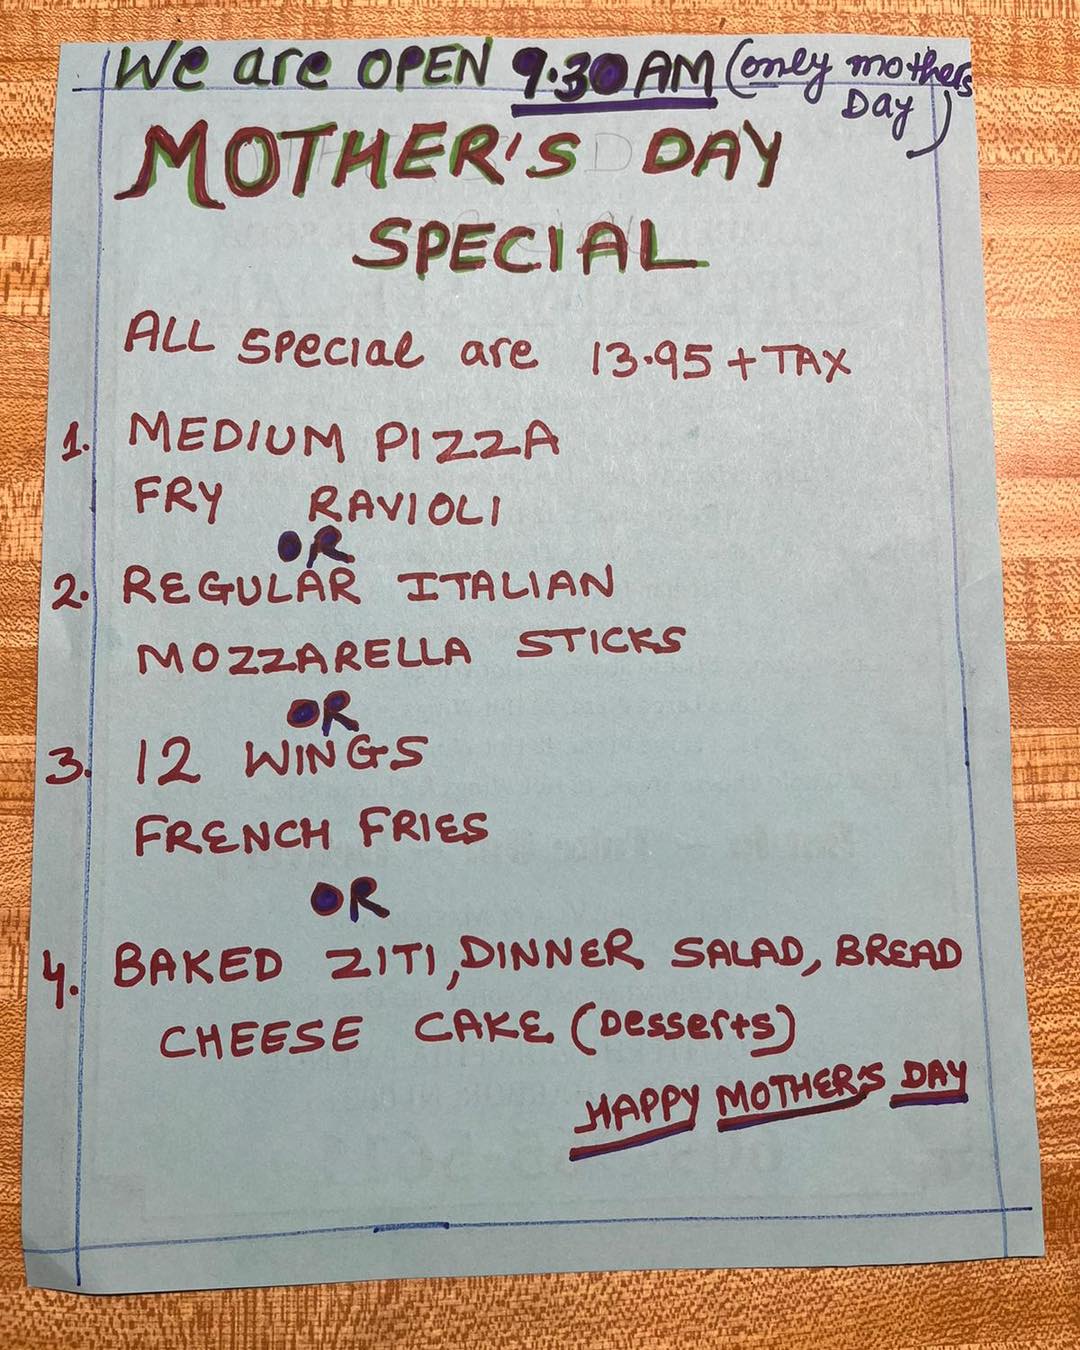 We are OPEN 9.30 AM (only mothers
Day)
MOTHER'S DAY
SPECIAL
ALL Special are 13.95 + TAX
1. MEDIUM PIZZA
FRY RAVIOLI
OR
2. REGULAR ITALIAN
MOZZARELLA STICKS
OR
3. 12 WINGS
FRENCH FRIES
OR
4. BAKED ZITI, DINNER SALAD, BREAD
CHEESE CAKE (Desserts)
HAPPY MOTHER'S DAY